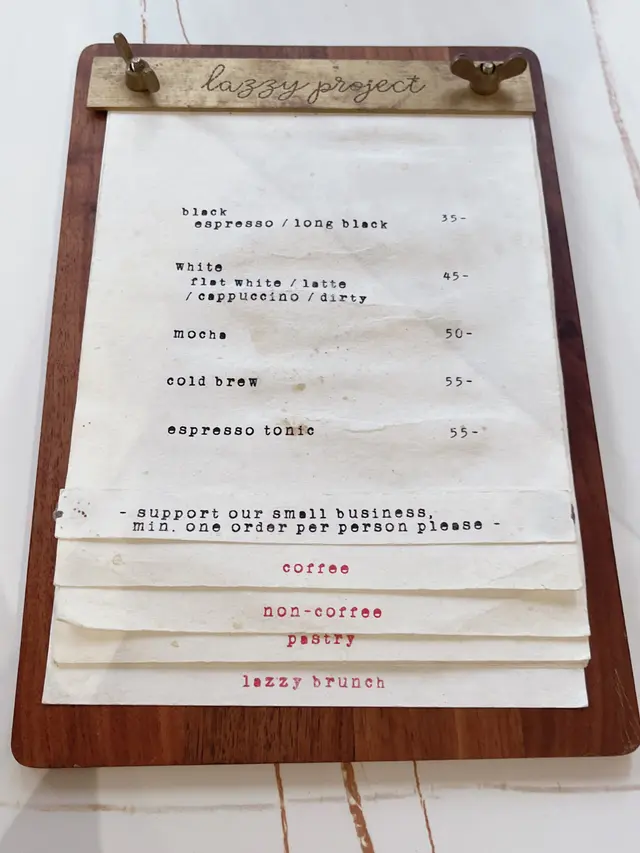 lazzy project
black
espresso / long black 35-
white
flat white / latte 45-
/ cappuccino / dirty
mocha 50-
cold brew 55-
espresso tonic 55-
- support our small business,
min. one order per person please -
coffee
non-coffee
pastry
lazzy brunch